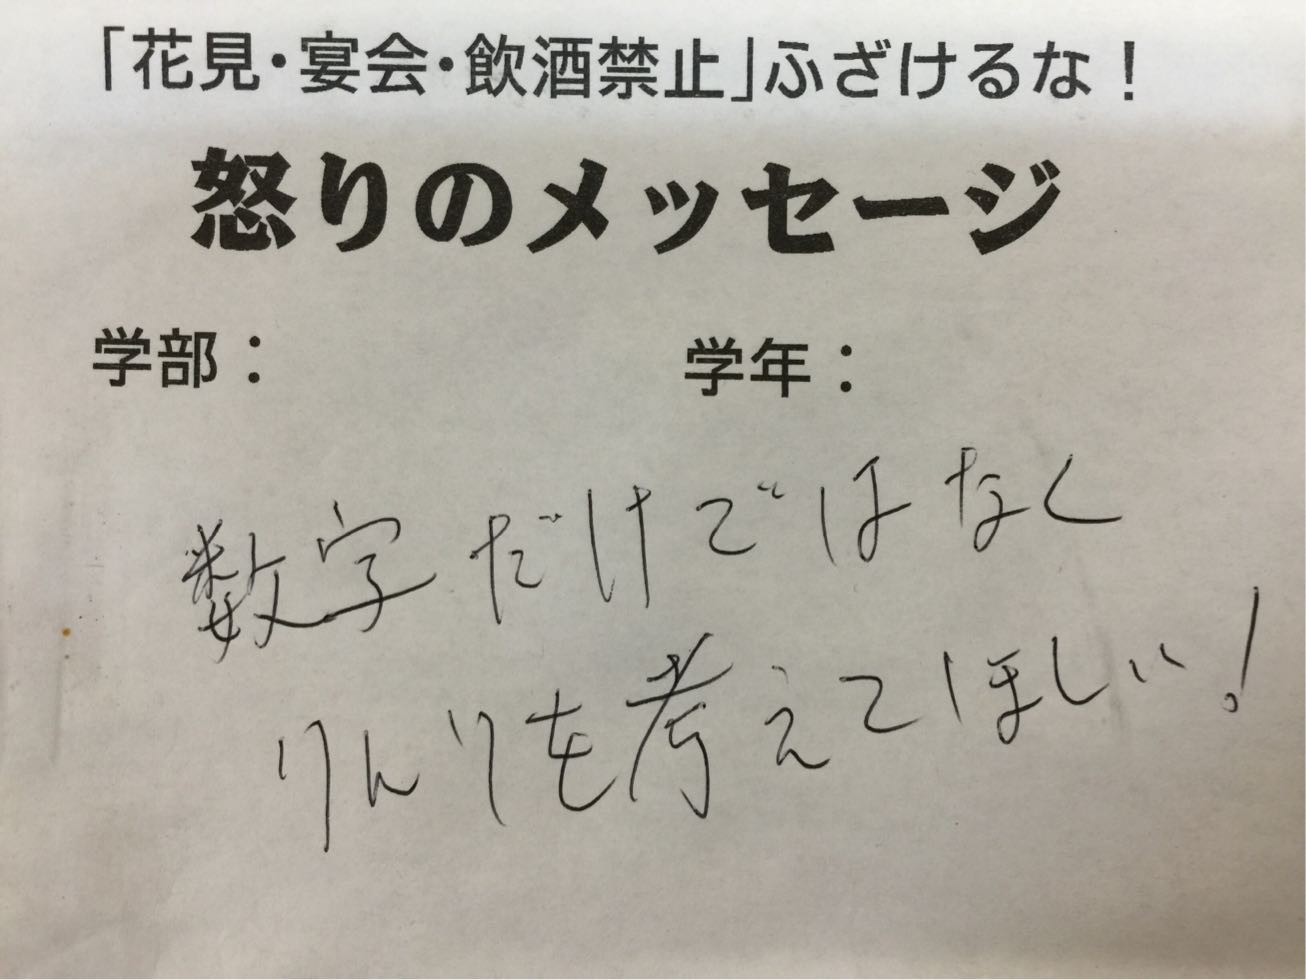 「花見・宴会・飲酒禁止」ふざけるな！
怒りのメッセージ
学部： 学年：
数字だけではなく
りんりを考えてほしい！